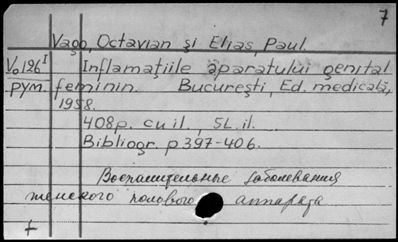 7
Vago, Octavian și Elias, Paul.
Vo126 I Inflamațiile aparatului genital
рум. feminin. București, Ed. medicală,
1958.
408p. cu il., 5L. il.
Bibliogr. p 397-406.
Воспалительные заболевания
женского полового аппарата
+